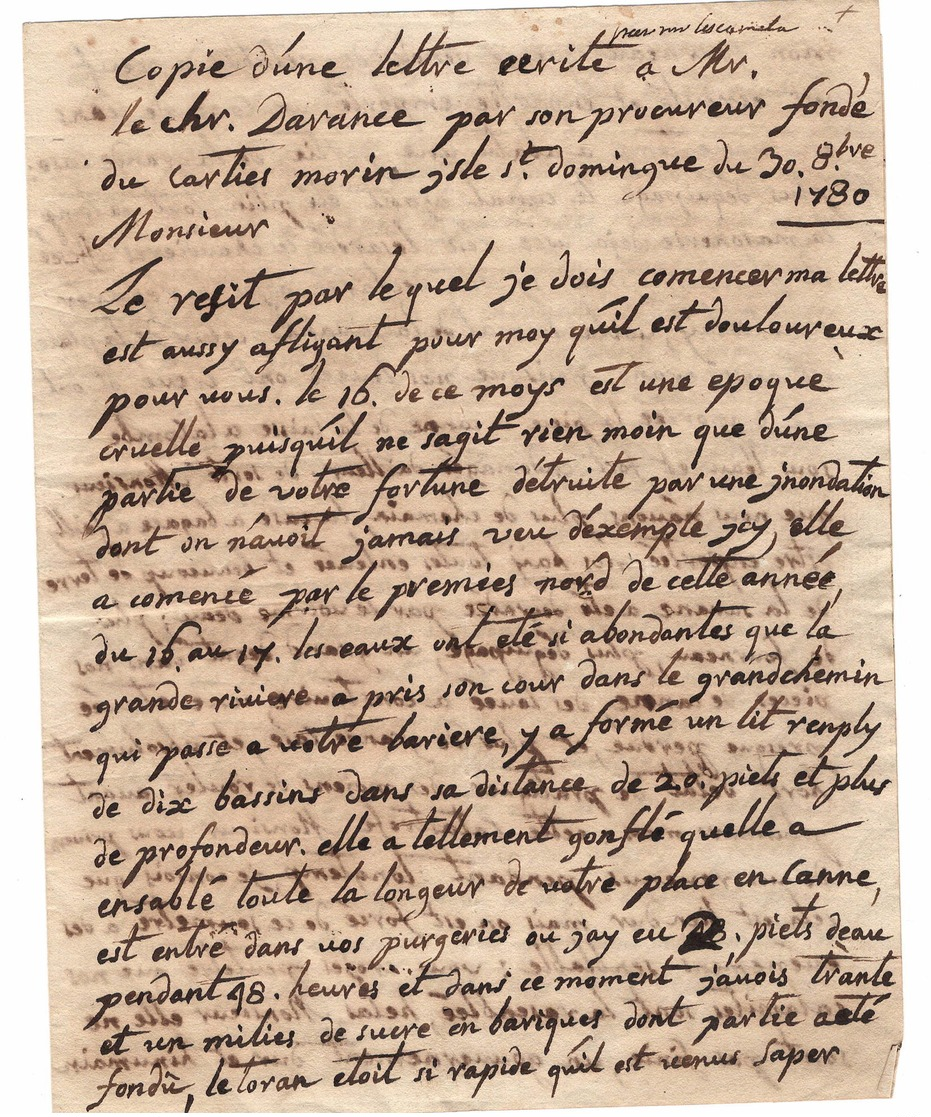 Copie d'une lettre ecrite a Mr.
le chr. Darance par son procureur fondé
du carties morin jsle st. domingue du 30. 8bre
1780
Monsieur
Le resit par le quel je dois comencer ma lettre
est aussy afligant pour moy qu'il est douloureux
pour vous. le 16. de ce moys est une epoque
cruelle puisqu'il ne sagit rien moin que d'une
partie de votre fortune détruite par une jnondation
dont on n'avoit jamais veu d'exemple jcy, elle
a comencé par le premies nord de cette année,
du 16. au 17. les eaux ont eté si abondantes que la
grande riviere a pris son cour dans le grandchemin
qui passe a votre bariere, y a formé un lit renply
de dix bassins dans sa distance de 20. piets et plus
de profondeur. elle a tellement gonflé quelle a
ensablé toute la longeur de votre place en Canne,
est entré dans vos purgeries ou jay eu piets deau
pendant 48. heures et dans ce moment j'avois trante
et un milies de sucre en bariques dont partie a eté
fondû, le toran etoit si rapide qu'il est venus saper